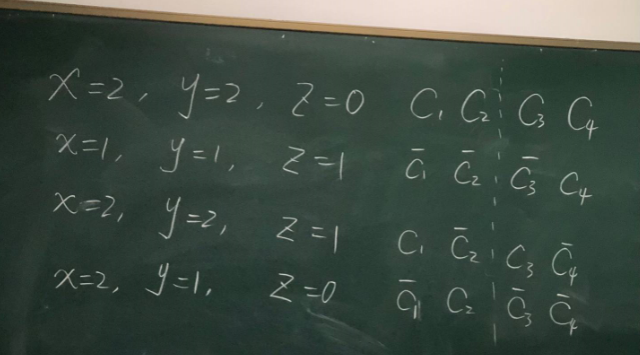 x=2, y=2, z=0 C₁ C₂ C₃ C₄
x=1, y=1, z=1 C̄₁ C̄₂ C̄₃ C₄
x=2, y=2, z=1 C₁ C̄₂ C₃ C̄₄
x=2, y=1, z=0 C̄₁ C₂ C̄₃ C̄₄